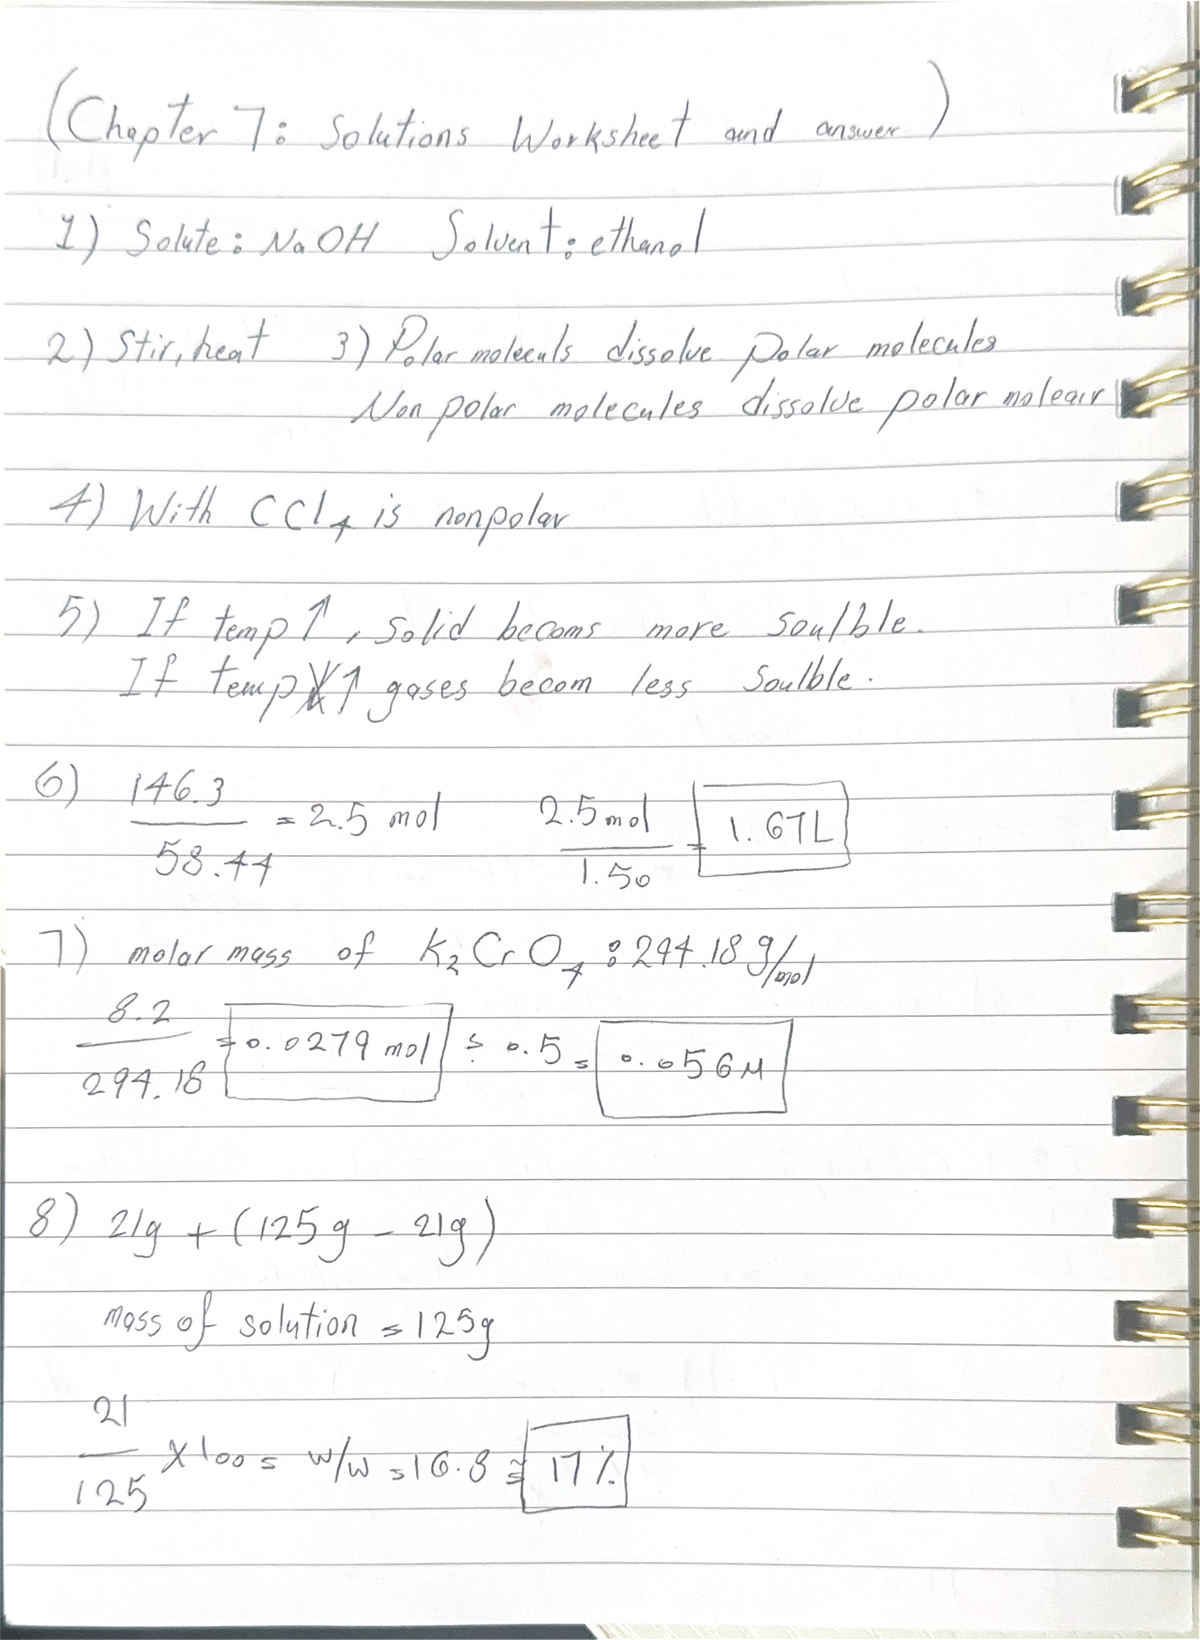 (Chapter 7: Solutions Worksheet and answer)
1) Solute: NaOH Solvent: ethanol
2) Stir, heat 3) Polar moleculs dissolve polar molecules
Non polar molecules dissolve polar
4) With CCl4 is nonpolar
5) If temp ↑, solid becoms more soulble.
If temp ↑ gases becom less soulble.
6) 146.3 / 58.44 = 2.5 mol 2.5 mol / 1.50 = 1.67L
7) molar mass of K2CrO4: 294.18 g/mol
8.2 / 294.18 = 0.0279 mol ÷ 0.5 = 0.056M
8) 21g + (125g - 21g)
mass of solution = 125g
21 / 125 x 100 = w/w = 16.8 ≈ 17%